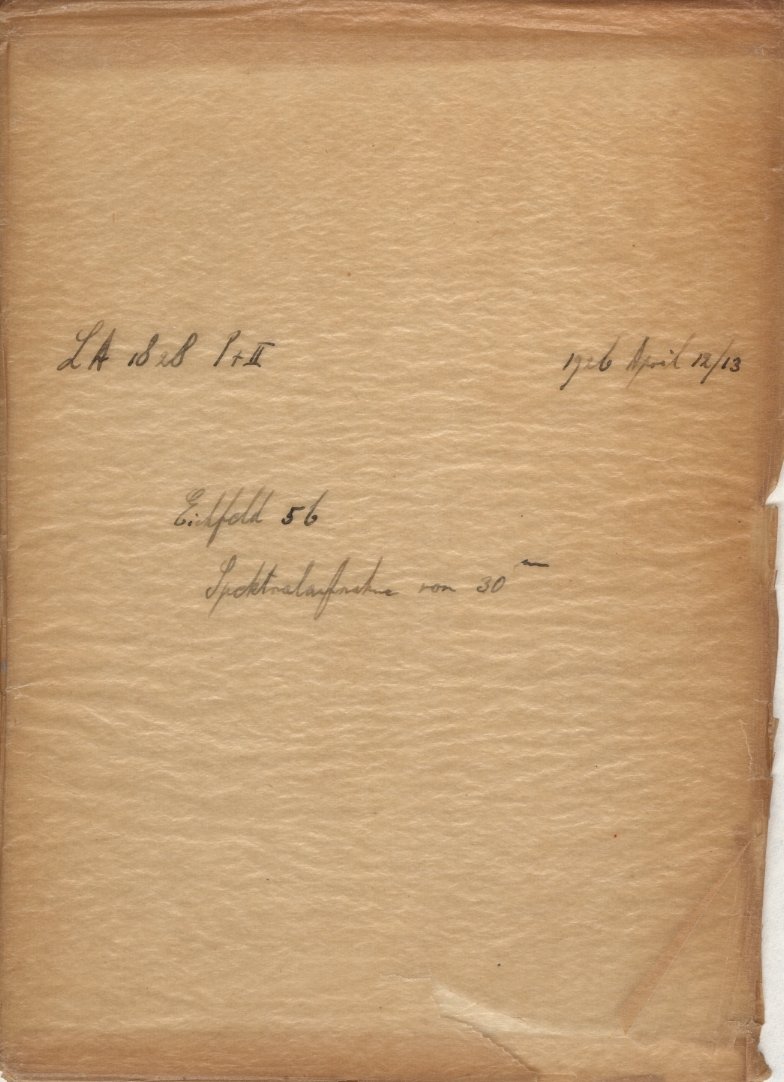 LA 1828 Pr II 1926 April 12/13
Eichfeld 56
Spektralaufnahme von 30ᵐ